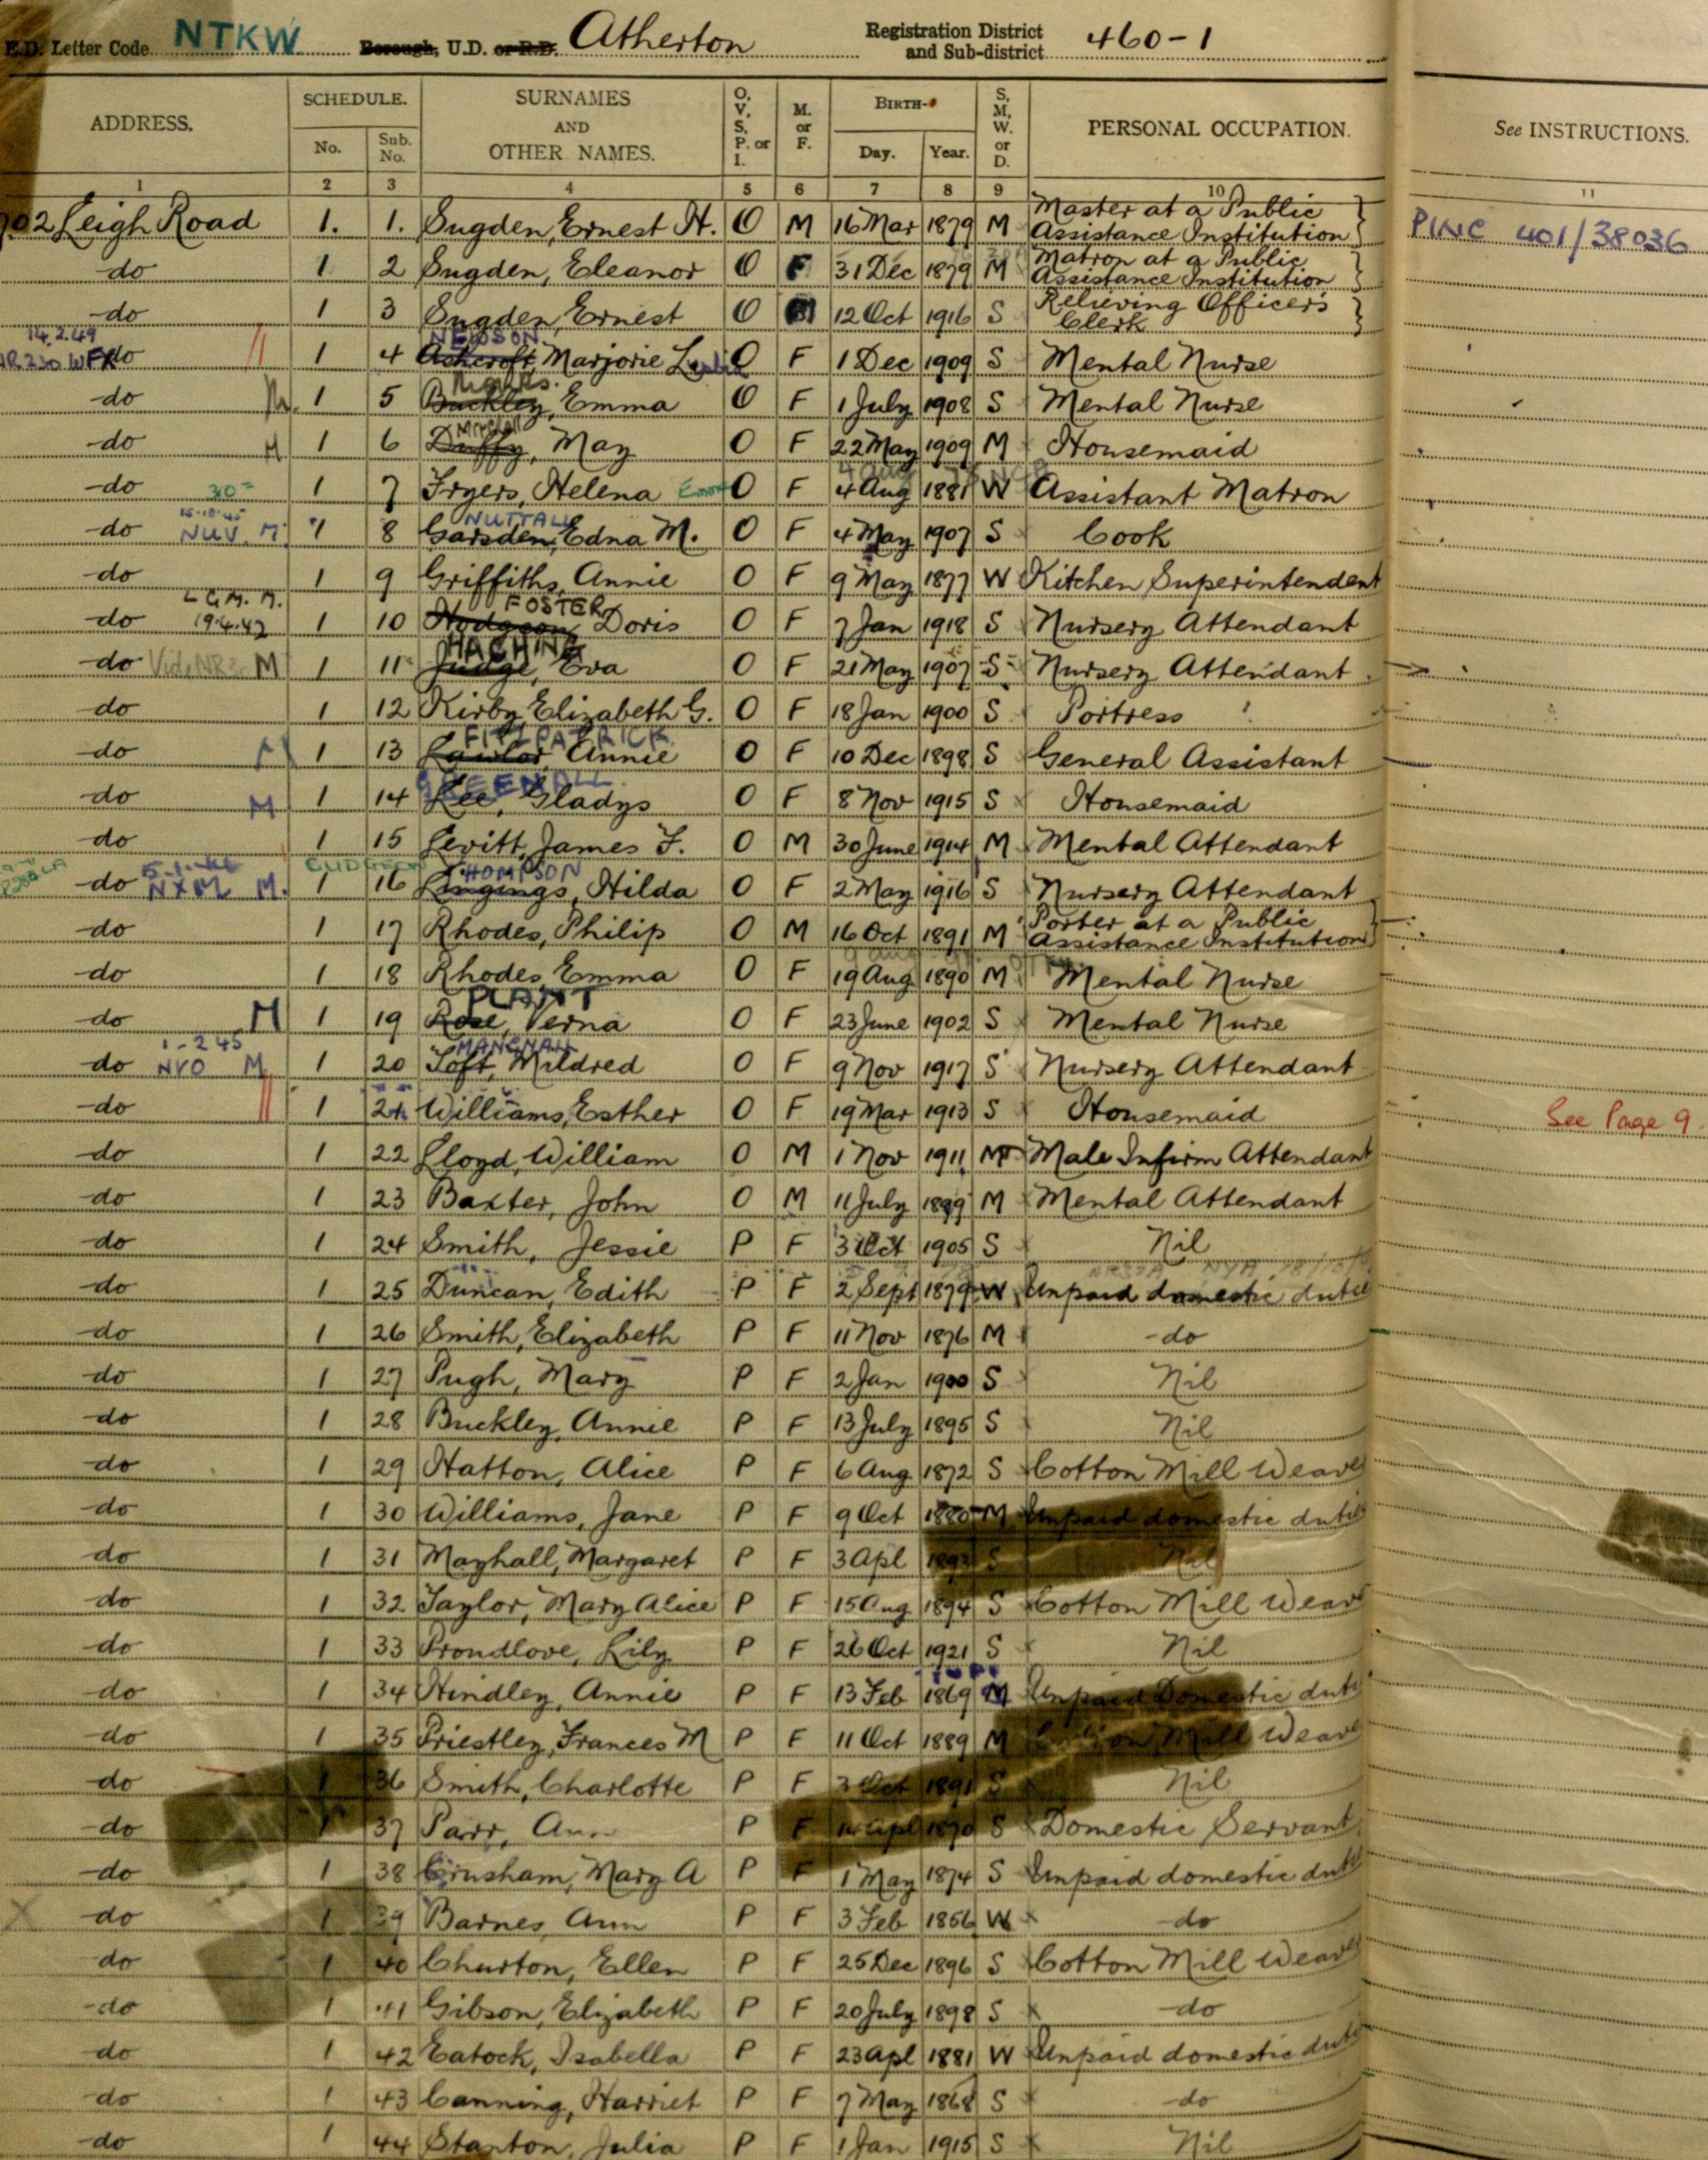 E.D. Letter Code NTKW Borough, U.D. or R.D. Atherton Registration District and Sub-district 460-1
ADDRESS. SCHEDULE. No. Sub. No. SURNAMES AND OTHER NAMES. O, V, S, P. or I. M. or F. BIRTH- Day. Year. S, M, W. or D. PERSONAL OCCUPATION. See INSTRUCTIONS.
1 2 3 4 5 6 7 8 9 10 11
02 Leigh Road 1. 1. Sugden, Ernest H. O M 16 Mar 1879 M Master at a Public Assistance Institution PINC 401/38036
do 1 2 Sugden, Eleanor O F 31 Dec 1879 M Matron at a Public Assistance Institution
do 1 3 Sugden, Ernest O M 12 Oct 1916 S Relieving Officer's Clerk
14.2.49 NEWSON
do 1 4 Ashcroft Marjorie O F 1 Dec 1909 S Mental Nurse
do 1 5 Buckley, Emma O F 1 July 1908 S Mental Nurse
do M 1 6 Duffy, May O F 22 May 1909 M Housemaid
do 1 7 Fryers, Helena O F 4 Aug 1881 W Assistant Matron
NUTTALL
do NUV. M. 1 8 Garsden, Edna M. O F 4 May 1907 S Cook
do 1 9 Griffiths, Annie O F 9 May 1877 W Kitchen Superintendent
L G M. M. FOSTER
do 19.4.42 1 10 Hodgson, Doris O F 7 Jan 1918 S Nursery Attendant
HACHING
do M 1 11 Judge, Eva O F 21 May 1907 S Nursery Attendant
do 1 12 Kirby, Elizabeth G. O F 18 Jan 1900 S Portress
FITZPATRICK
do M 1 13 Lawlor, Annie O F 10 Dec 1898 S General Assistant
GREENALL
do M 1 14 Lee, Gladys O F 8 Nov 1915 S Housemaid
do 1 15 Levitt, James F. O M 30 June 1914 M Mental Attendant
THOMPSON
do NXM M. 1 16 Hilda O F 2 May 1916 S Nursery Attendant
do 1 17 Rhodes, Philip O M 16 Oct 1891 M Porter at a Public Assistance Institution
do 1 18 Rhodes, Emma O F 19 Aug 1890 M Mental Nurse
PLANT
do M 1 19 Rose, Verna O F 23 June 1902 S Mental Nurse
1-2 45 MANGNALL
do NYO M 1 20 Toft, Mildred O F 9 Nov 1917 S Nursery Attendant
do 1 21 Williams, Esther O F 19 Mar 1913 S Housemaid See Page 9.
do 1 22 Lloyd, William O M 1 Nov 1911 M Male Infirm Attendant
do 1 23 Baxter, John O M 11 July 1899 M Mental Attendant
do 1 24 Smith, Jessie P F 3 Oct 1905 S Nil
do 1 25 Duncan, Edith P F 2 Sept 1879 W Unpaid domestic dutie
do 1 26 Smith, Elizabeth P F 11 Nov 1876 M do
do 1 27 Pugh, Mary P F 2 Jan 1900 S Nil
do 1 28 Buckley, Annie P F 13 July 1895 S Nil
do 1 29 Hatton, Alice P F 6 Aug 1872 S Cotton Mill Weaver
do 1 30 Williams, Jane P F 9 Oct 1880 M Unpaid domestic dutie
do 1 31 Mayhall, Margaret P F 3 Apl 1893 S Nil
do 1 32 Taylor, Mary Alice P F 15 Aug 1894 S Cotton Mill Weav
do 1 33 Proudlove, Lily P F 26 Oct 1921 S Nil
do 1 34 Hindley, Annie P F 13 Feb 1869 M Unpaid Domestic duti
do 1 35 Priestley, Frances M P F 11 Oct 1889 M Cotton Mill Weave
do 1 36 Smith, Charlotte P F 3 Oct 1891 S Nil
do 1 37 Parr, Ann P F 14 Apl 1870 S Domestic Servant
do 1 38 Crusham, Mary A P F 1 May 1874 S Unpaid domestic duti
X do 1 39 Barnes, Ann P F 3 Feb 1856 W do
do 1 40 Churton, Ellen P F 25 Dec 1896 S Cotton Mill Weaver
do 1 41 Gibson, Elizabeth P F 20 July 1898 S do
do 1 42 Eatock, Isabella P F 23 Apl 1881 W Unpaid domestic duti
do 1 43 Canning, Harriet P F 7 May 1868 S do
do 1 44 Stanton, Julia P F 1 Jan 1915 S Nil